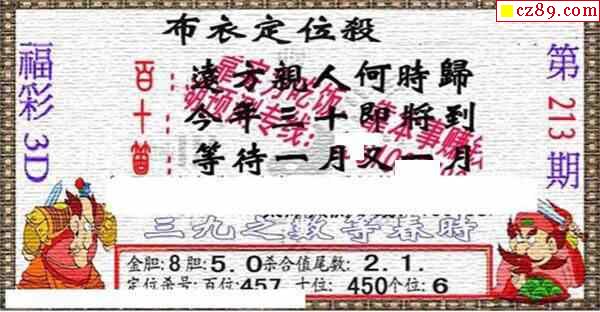 cz89.com
布衣定位殺
福彩3D
第213期
百：遠方親人何時歸
十：今年三十即將到
等待一月又一月
三九之數等春時
金胆:8胆:5.0杀合值尾数:2.1.
定位杀号:百位:457 十位:450个位:6